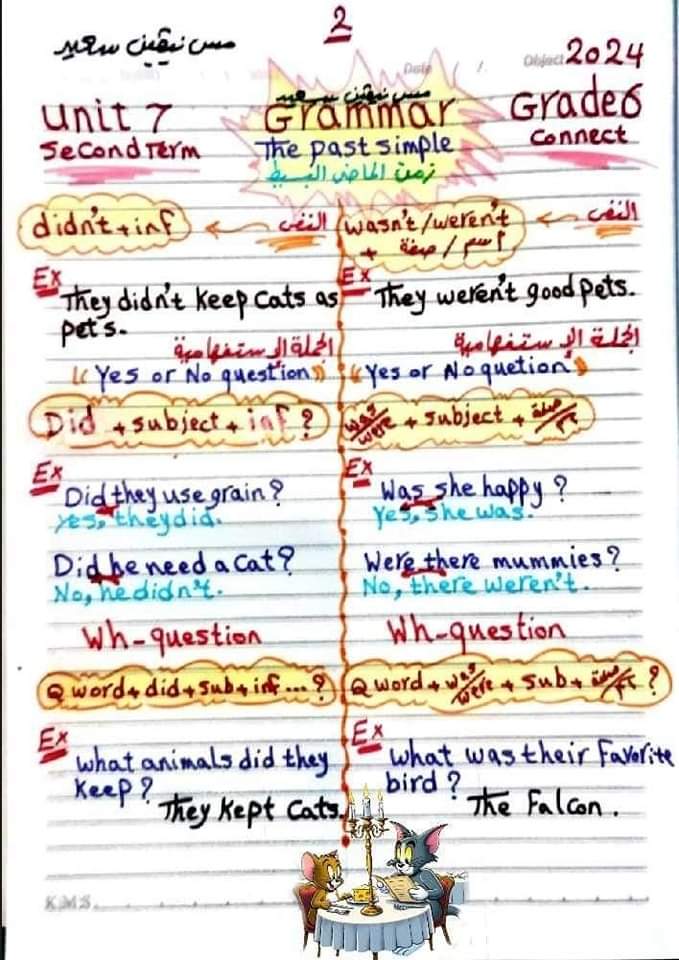 2
مس نيڤين سعيد
Date / /
Object 2024
مس نيڤين سعيد
Unit 7
Grammar
Grade 6
Second Term
The past simple
Connect
زمن الماضى البسيط
didn't + inf ← النفى
Ex They didn't keep cats as
pets.
الجملة الإستفهامية
(( Yes or No question ))
Did + subject + inf ?
Ex Did they use grain?
Yes, they did.
Did he need a cat?
No, he didn't.
Wh-question
Q word + did + sub + inf ... ?
Ex what animals did they
keep?
They kept cats.
wasn't / weren't ← النفى
+ اسم / صفة
Ex They weren't good pets.
الجملة الإستفهامية
(( Yes or No quetion ))
was/were + subject + صفة/اسم
Ex Was she happy ?
Yes, she was.
Were there mummies?
No, there weren't.
Wh-question
Q word + was/were + sub + صفة/اسم ?
Ex what was their favorite
bird ?
The Falcon.
KMS